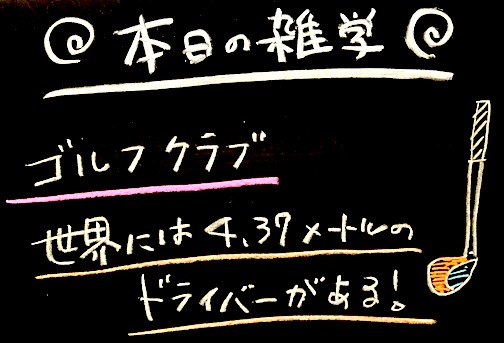 本日の雑学
ゴルフクラブ
世界には4.37メートルの
ドライバーがある!